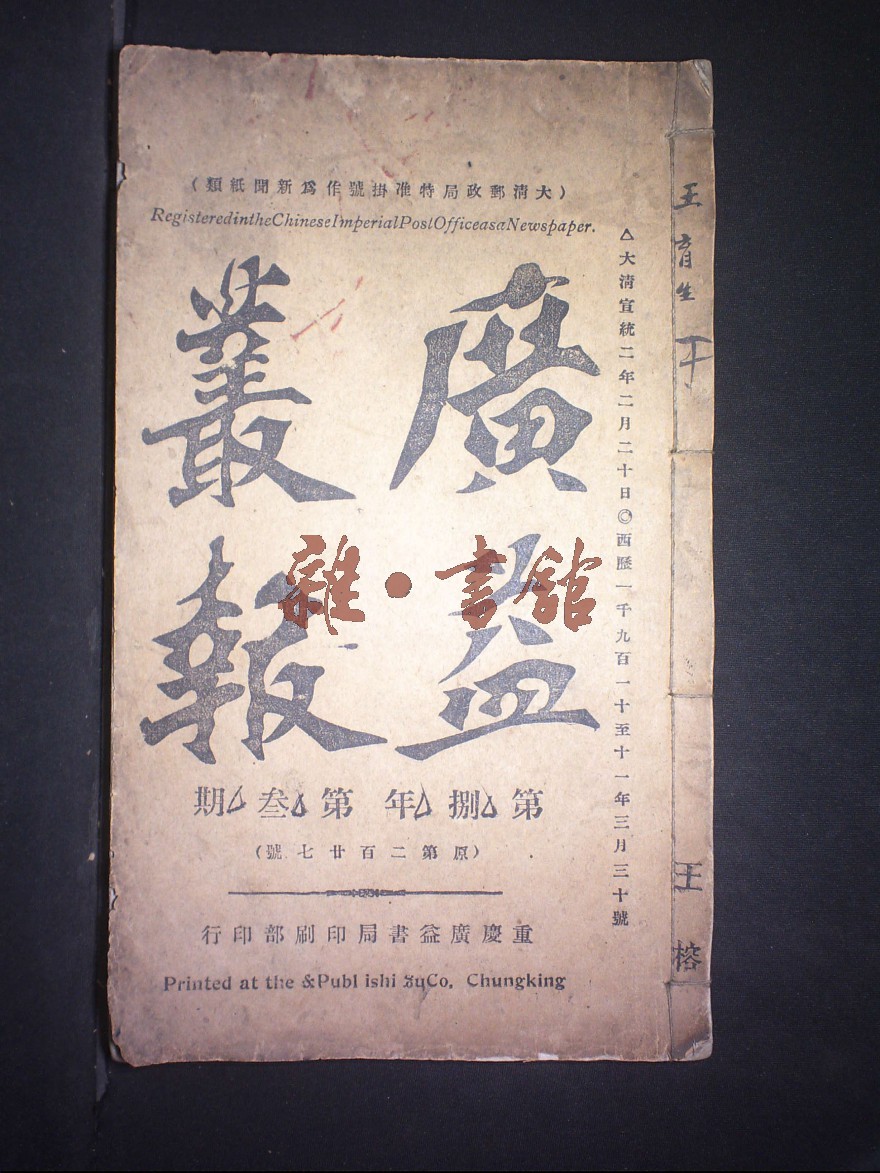 （大清郵政局特准掛號作爲新聞紙類）
RegisteredintheChineseImperialPostOfficeasaNewspaper.
△大清宣統二年二月二十日◎西歷一千九百一十至十一年三月三十號
廣益
叢報
雜·書館
第△捌△年第△叁△期
（原第二百廿七號）
重慶廣益書局印刷部印行
Printed at the &Publ ishi ƷuCo. Chungking
王育生
王榕